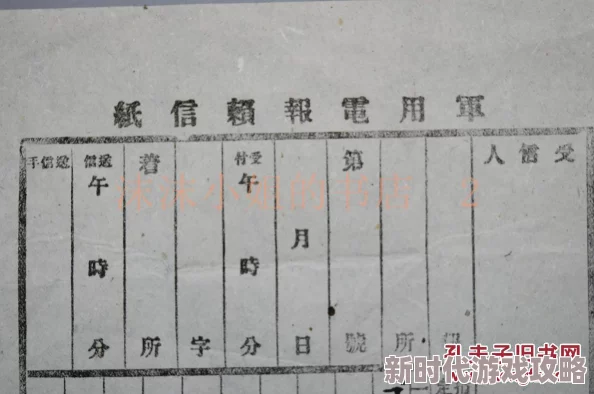 軍用電報賴信紙
受信人
所
第號
月日
受付午時分
字
著所
送信午時分
送信手
沫沫小姐的书店 2
孔夫子旧书网
新时代游戏攻略